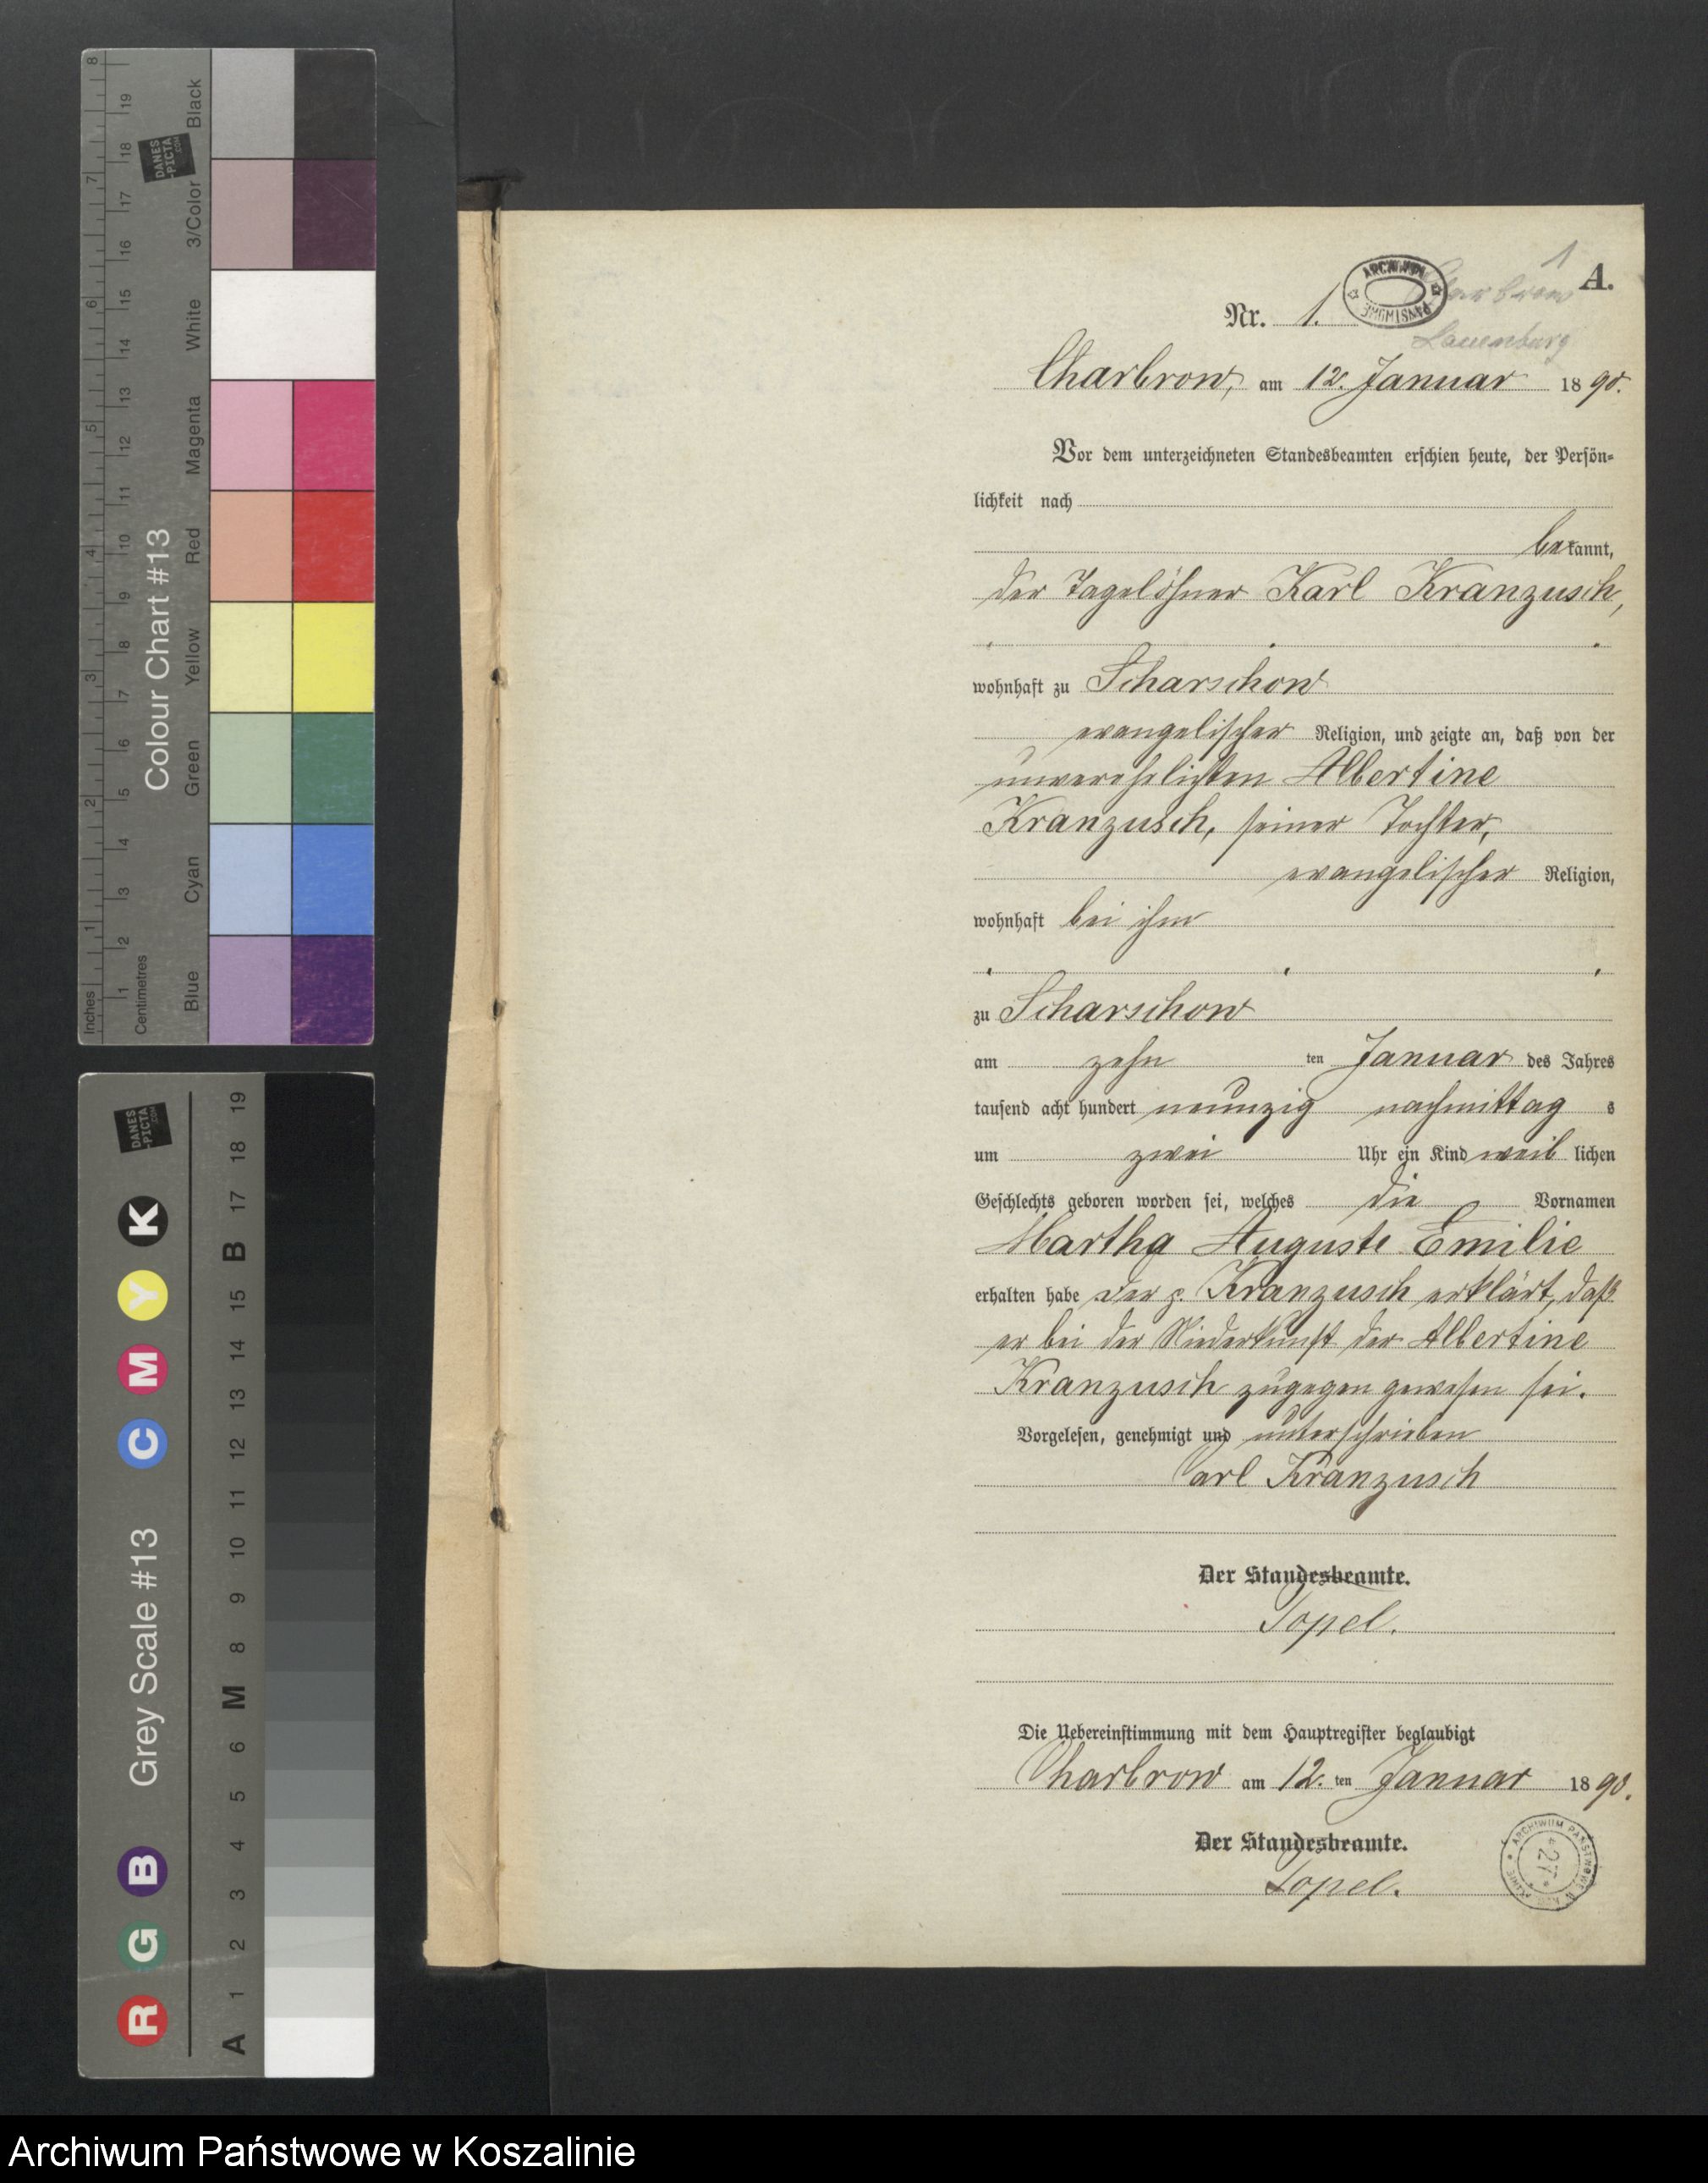 8 7 6 5 4 3 2 1 Inches
19 18 17 16 15 14 13 12 11 10 9 8 7 6 5 4 3 2 1 Centimetres
DANES
-PICTA
.COM
Colour Chart #13
Black
3/Color
White
Magenta
Red
Yellow
Green
Cyan
Blue
DANES
-PICTA
.COM
Grey Scale #13
R G B C M Y K
A 1 2 3 4 5 6 M 8 9 10 11 12 13 14 15 B 17 18 19
1
A.
Charbrow
Lauenburg
ARCHIWUM PAŃSTWOWE
Nr. 1.
Charbrow, am 12. Januar 1890.
Vor dem unterzeichneten Standesbeamten erschien heute, der Persön-
lichkeit nach
bekannt,
der Tagelöhner Karl Kranzusch,
wohnhaft zu Scharschow
evangelischer Religion, und zeigte an, daß von der
unverehelichten Albertine
Kranzusch, seiner Tochter,
evangelischer Religion,
wohnhaft bei ihm
zu Scharschow
am zehn ten Januar des Jahres
tausend acht hundert neunzig nachmittag s
um zwei Uhr ein Kind weib lichen
Geschlechts geboren worden sei, welches die Vornamen
Martha Auguste Emilie
erhalten habe Der p. Kranzusch erklärt, daß
er bei der Niederkunft der Albertine
Kranzusch zugegen gewesen sei.
Vorgelesen, genehmigt und unterschrieben
Carl Kranzusch
Der Standesbeamte.
Topel.
Die Uebereinstimmung mit dem Hauptregister beglaubigt
Charbrow am 12. ten Januar 1890.
Der Standesbeamte.
Topel.
ARCHIWUM PAŃSTWOWE
27
Archiwum Państwowe w Koszalinie